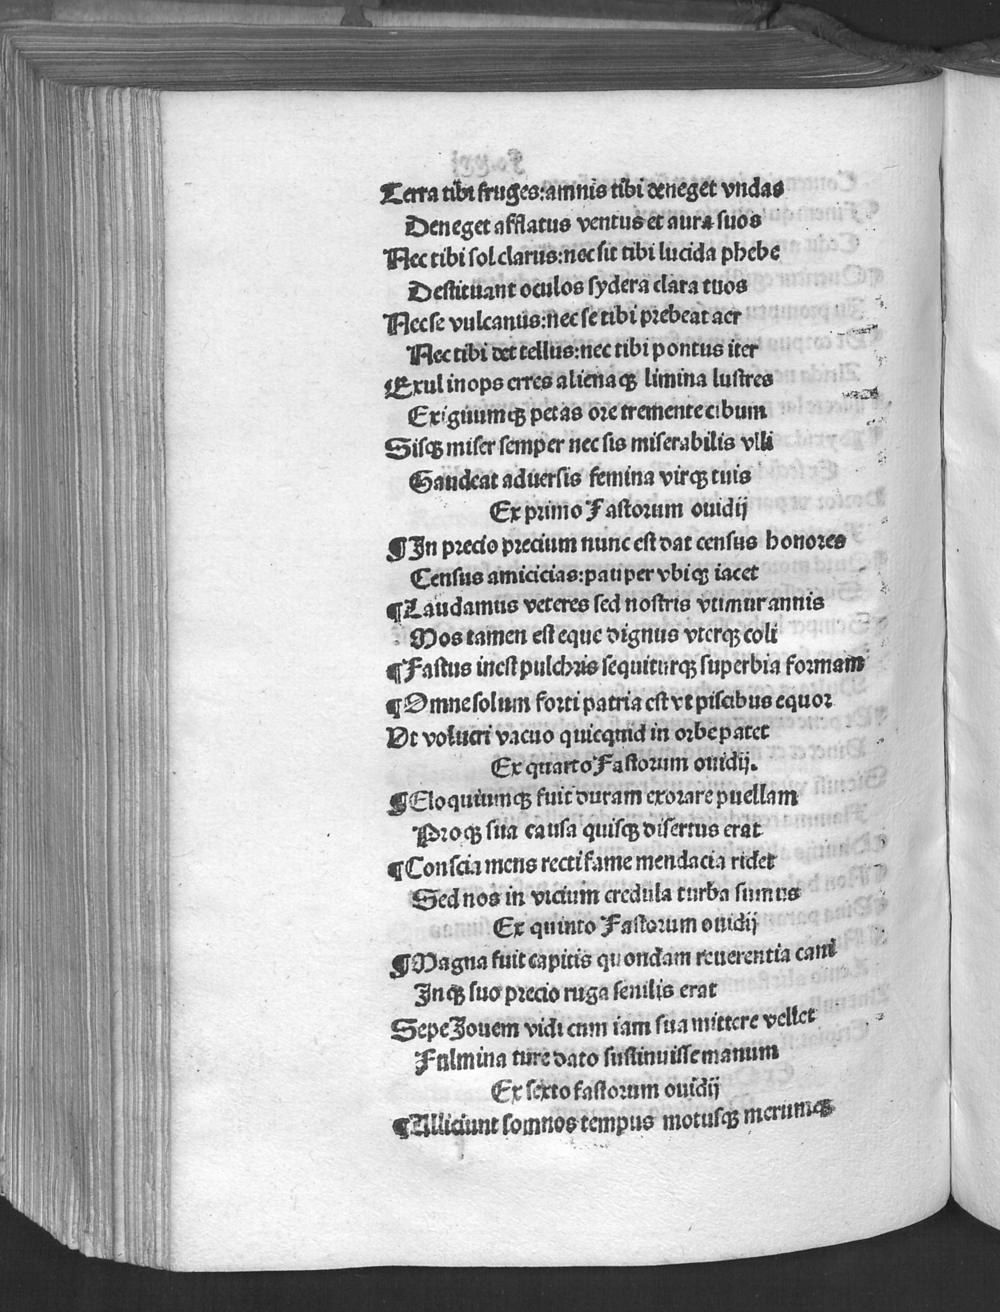 Terra tibi fruges:amnis tibi deneget vndas
Deneget afflatus ventus et aura suos
Nec tibi sol clarus:nec sit tibi lucida phebe
Destituant oculos sydera clara tuos
Nec se vulcanus:nec se tibi prebeat aer
Nec tibi det tellus:nec tibi pontus iter
Exul inops erres alienaqꝫ limina lustres
Exiguumqꝫ petas ore tremente cibum
Sisqꝫ miser semper nec sis miserabilis vlli
Gaudeat aduersis femina virqꝫ tuis
Ex primo Fastorum ouidij
¶In precio precium nunc est dat census honores
Census amicicias:pauper vbiqꝫ iacet
¶Laudamus veteres sed nostris vtimur annis
Mos tamen est eque dignus vterqꝫ coli
¶Fastus inest pulchris sequiturqꝫ superbia formam
¶Omne solum forti patria est vt piscibus equor
Vt volucri vacuo quicquid in orbe patet
Ex quarto Fastorum ouidij.
¶Eloquiumqꝫ fuit duram exorare puellam
Proqꝫ sua causa quisqꝫ disertus erat
¶Conscia mens recti fame mendacia ridet
Sed nos in vicium credula turba sumus
Ex quinto Fastorum ouidij
¶Magna fuit capitis quondam reuerentia cani
Inqꝫ suo precio ruga senilis erat
Sepe Jouem vidi cum iam sua mittere vellet
Fulmina ture dato sustinuisse manum
Ex sexto fastorum ouidij
¶Alliciunt somnos tempus motusqꝫ merumqꝫ